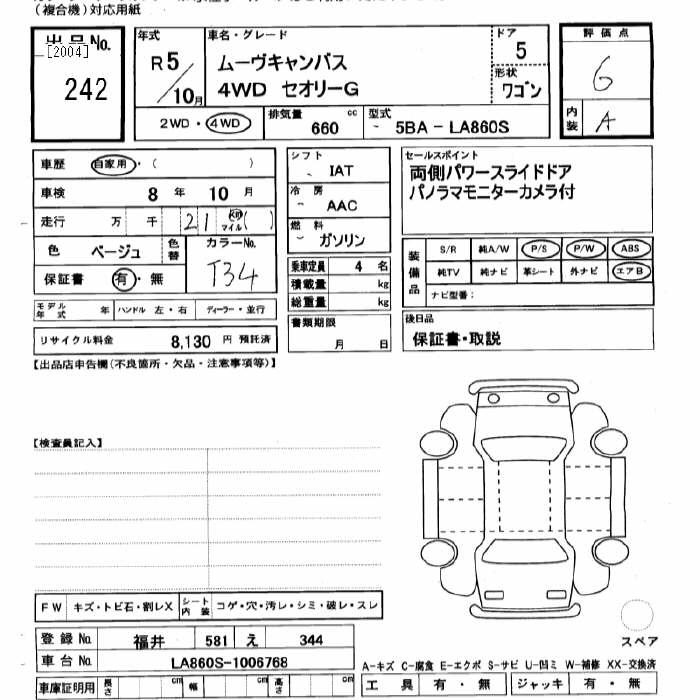 (複合機)対応用紙
出品No.
[2004]
242
年式
R5/10月
車名・グレード
ムーヴキャンバス
4WD セオリーG
ドア
5
形状
ワゴン
評価点
6
内装
A
2WD・4WD
排気量 660 cc
型式
5BA - LA860S
車歴 自家用・( )
車検 8年 10月
走行 万 千 21 km マイル( )
色 ベージュ 色替
カラーNo.
T34
保証書 有・無
モデル年式 年 ハンドル 左・右 ディーラー・並行
リサイクル料金 8,130 円 預託済
シフト
IAT
冷房
AAC
燃料
ガソリン
乗車定員 4 名
積載量 kg
総重量 kg
書類期限
月 日
セールスポイント
両側パワースライドドア
パノラマモニターカメラ付
装備品
S/R 純A/W P/S P/W ABS
純TV 純ナビ 革シート 外ナビ エアB
ナビ型番:
後日品
保証書・取説
【出品店申告欄(不良箇所・欠品・注意事項等)】
【検査員記入】
FW キズ・トビ石・割レX シート内装 コゲ・穴・汚レ・シミ・破レ・スレ
登録No. 福井 581 え 344
車台No. LA860S-1006768
車庫証明用 長さ cm 幅 cm 高さ cm
スペア
A-キズ C-腐食 E-エクボ S-サビ U-凹ミ W-補修 XX-交換済
工具 有・無 ジャッキ 有・無